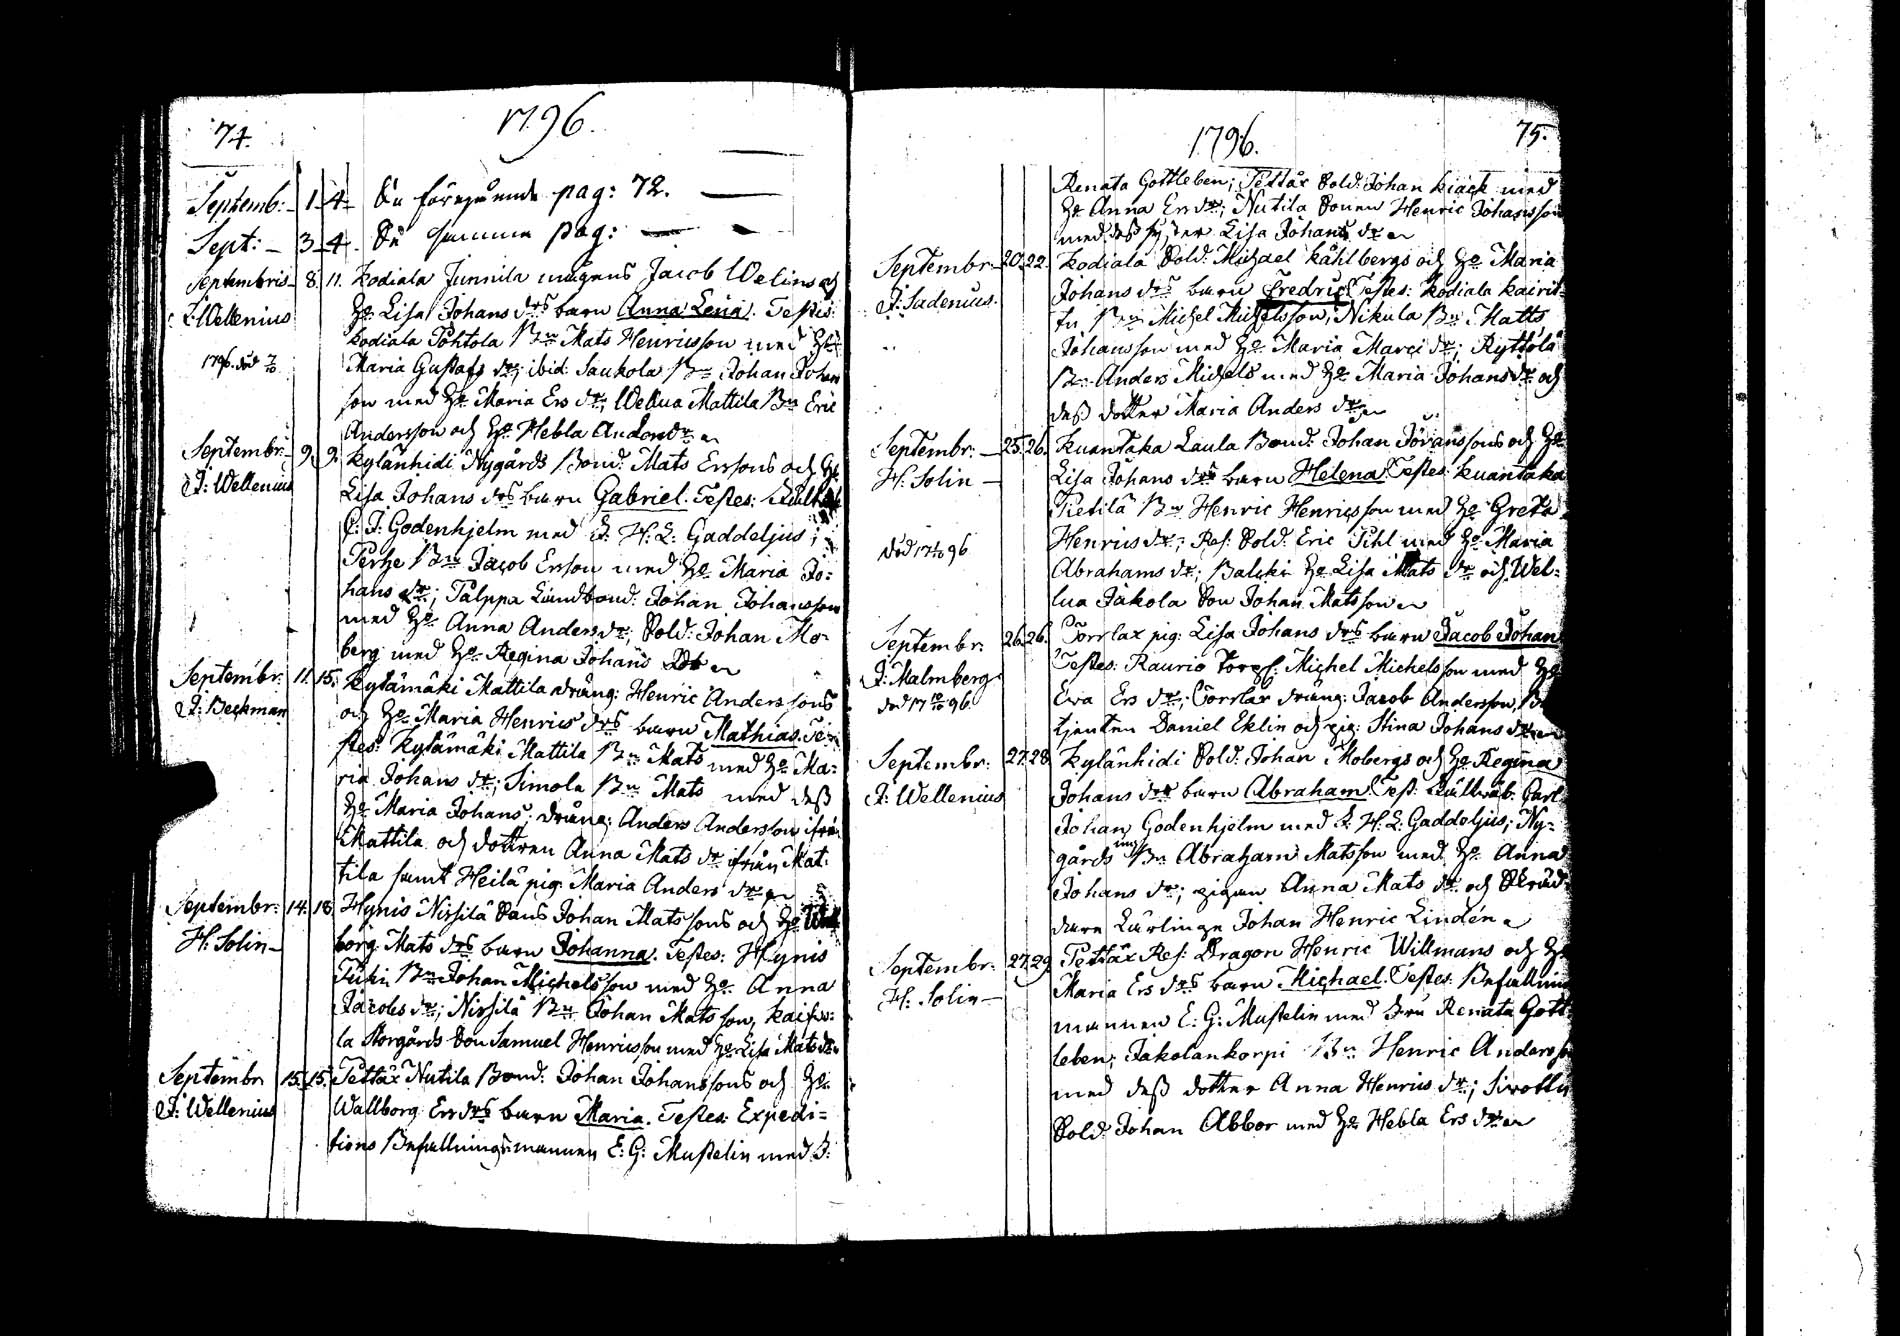 74.
1796.
Septemb: 1. 4. Se föregående pag: 72.
Sept: 3. 4. Se samma pag:
Septembris 8. 11. Kodiala Junnila mågens Jacob Welins och
J: Wellenius Hu Lisa Johans drs barn Anna Lena. Testes:
Kodiala Pohtola Bn Mats Henricsson med Hu
1796. död 7/10 Maria Gustafs dr; ibid: Saukola Bn Johan Johans
son med Hu Maria Ers dr; Wellua Mattila Bn Eric
Andersson och Hu Hebla Anders dr
Septembr: 9. 9. Kylänhidi Nygårds Bond: Mats Erssons och Hu
J: Wellenius Lisa Johans drs barn Gabriel. Testes:
C: J: Godenhjelm med F: H: L: Gaddeljus;
Perhe Bn Jacob Ersson med Hu Maria Jo:
hans dr; Palppa Landbond: Johan Johansson
med Hu Anna Anders dr; Sold: Johan Mo-
berg med Hu Regina Johans Dotr
Septembr: 11. 15. Kylämäki Mattila dräng: Henric Anderssons
J: Beckman och Hu Maria Henrics drs barn Mathias. Te-
stes: Kylämäki Mattila Bn Mats med Hu Ma:
ria Johans dr; Simola Bn Mats med dess
Hu Maria Johans; dräng: Anders Andersson ifrå
Mattila och dottren Anna Mats dr ifrån Mat:
tila samt Heilä pig: Maria Anders dr
Septembr: 14. 18. Hynis Nissilä Sons Johan Matssons och Hu Wall
H: Solin borg Mats drs barn Johanna. Testes: Hynis
Tuki Bn Johan Michelsson med Hu Anna
Jacobs dr; Nissilä Bn Johan Matsson, Kaiss:
la Storgårds Son Samuel Henricsson med Hu Lisa Mats dr
Septembr 15. 15. Tettär Nutila Bond: Johan Johanssons och Hu
J: Wellenius Wallborg Ers drs barn Maria. Testes: Expedi=
tions Befallningsmannen E: G: Mustelin med F:
1796.
75.
Renata Gottleben; Tettär Sold: Johan Kiack med
Hu Anna Ers dr; Nutila Sonen Henric Johansson
med dess syster Lisa Johans dr
Septembr: 20. 22. Kodiala Sold: Michael Kåhlbergs och Hu Maria
J: Sadenius. Johans drs barn Fredric Testes: Kodiala Kairit=
tu Bn Michel Michelsson; Nikula Bn Matts
Johansson med Hu Maria Marci dr; Ryttölä
Bn Anders Michels med Hu Maria Johans dr och
dess dotter Maria Anders dr
Septembr: 25. 26. Kuantaka Laula Bond: Johan Jöranssons och Hu
H: Solin Lisa Johans drs barn Helena Testes: Kuantaka
Pietilä Bn Henric Henricsson med Hu Greta
död 17 96 Henrics dr; Res: Sold: Eric Pihl med Hu Maria
Abrahams dr; Balski Hu Lisa Mats dr och Wel=
lua Jakola Son Johan Matsson
Septembr: 26. 26. Torrlax pig: Lisa Johans drs barn Jacob Johan
J: Malmberg Testes: Raurio Torps: Michel Michelsson med Hu
död 17 96 Ewa Ers dr; Torrlax dräng: Jacob Andersson,
tjenten Daniel Eklin och pig: Stina Johans dr
Septembr: 27. 28. Kylänhidi Sold: Johan Mobergs och Hu Regina
J: Wellenius Johans drs barn Abraham Test: Fältwäb: Carl
Johan Godenhjelm med F: H: L: Gaddeljus; Ny=
gårds Bn Abraham Matsson med Hu Anna
Johans dr; pigan Anna Mats dr och Skräd=
dare Lärlinge Johan Henric Lindén
Septembr: 27. 29. Tettär Res: Dragon Henric Willmans och Hu
H: Solin Maria Ers drs barn Michael. Testes: Befallnings
mannen E: G: Mustelin med Fru Renata Gott=
leben; Jakolankorpi Bn Henric Andersson
med dess dotter Anna Henrics dr; Sirottu
Sold: Johan Abbor med Hu Hebla Ers dr